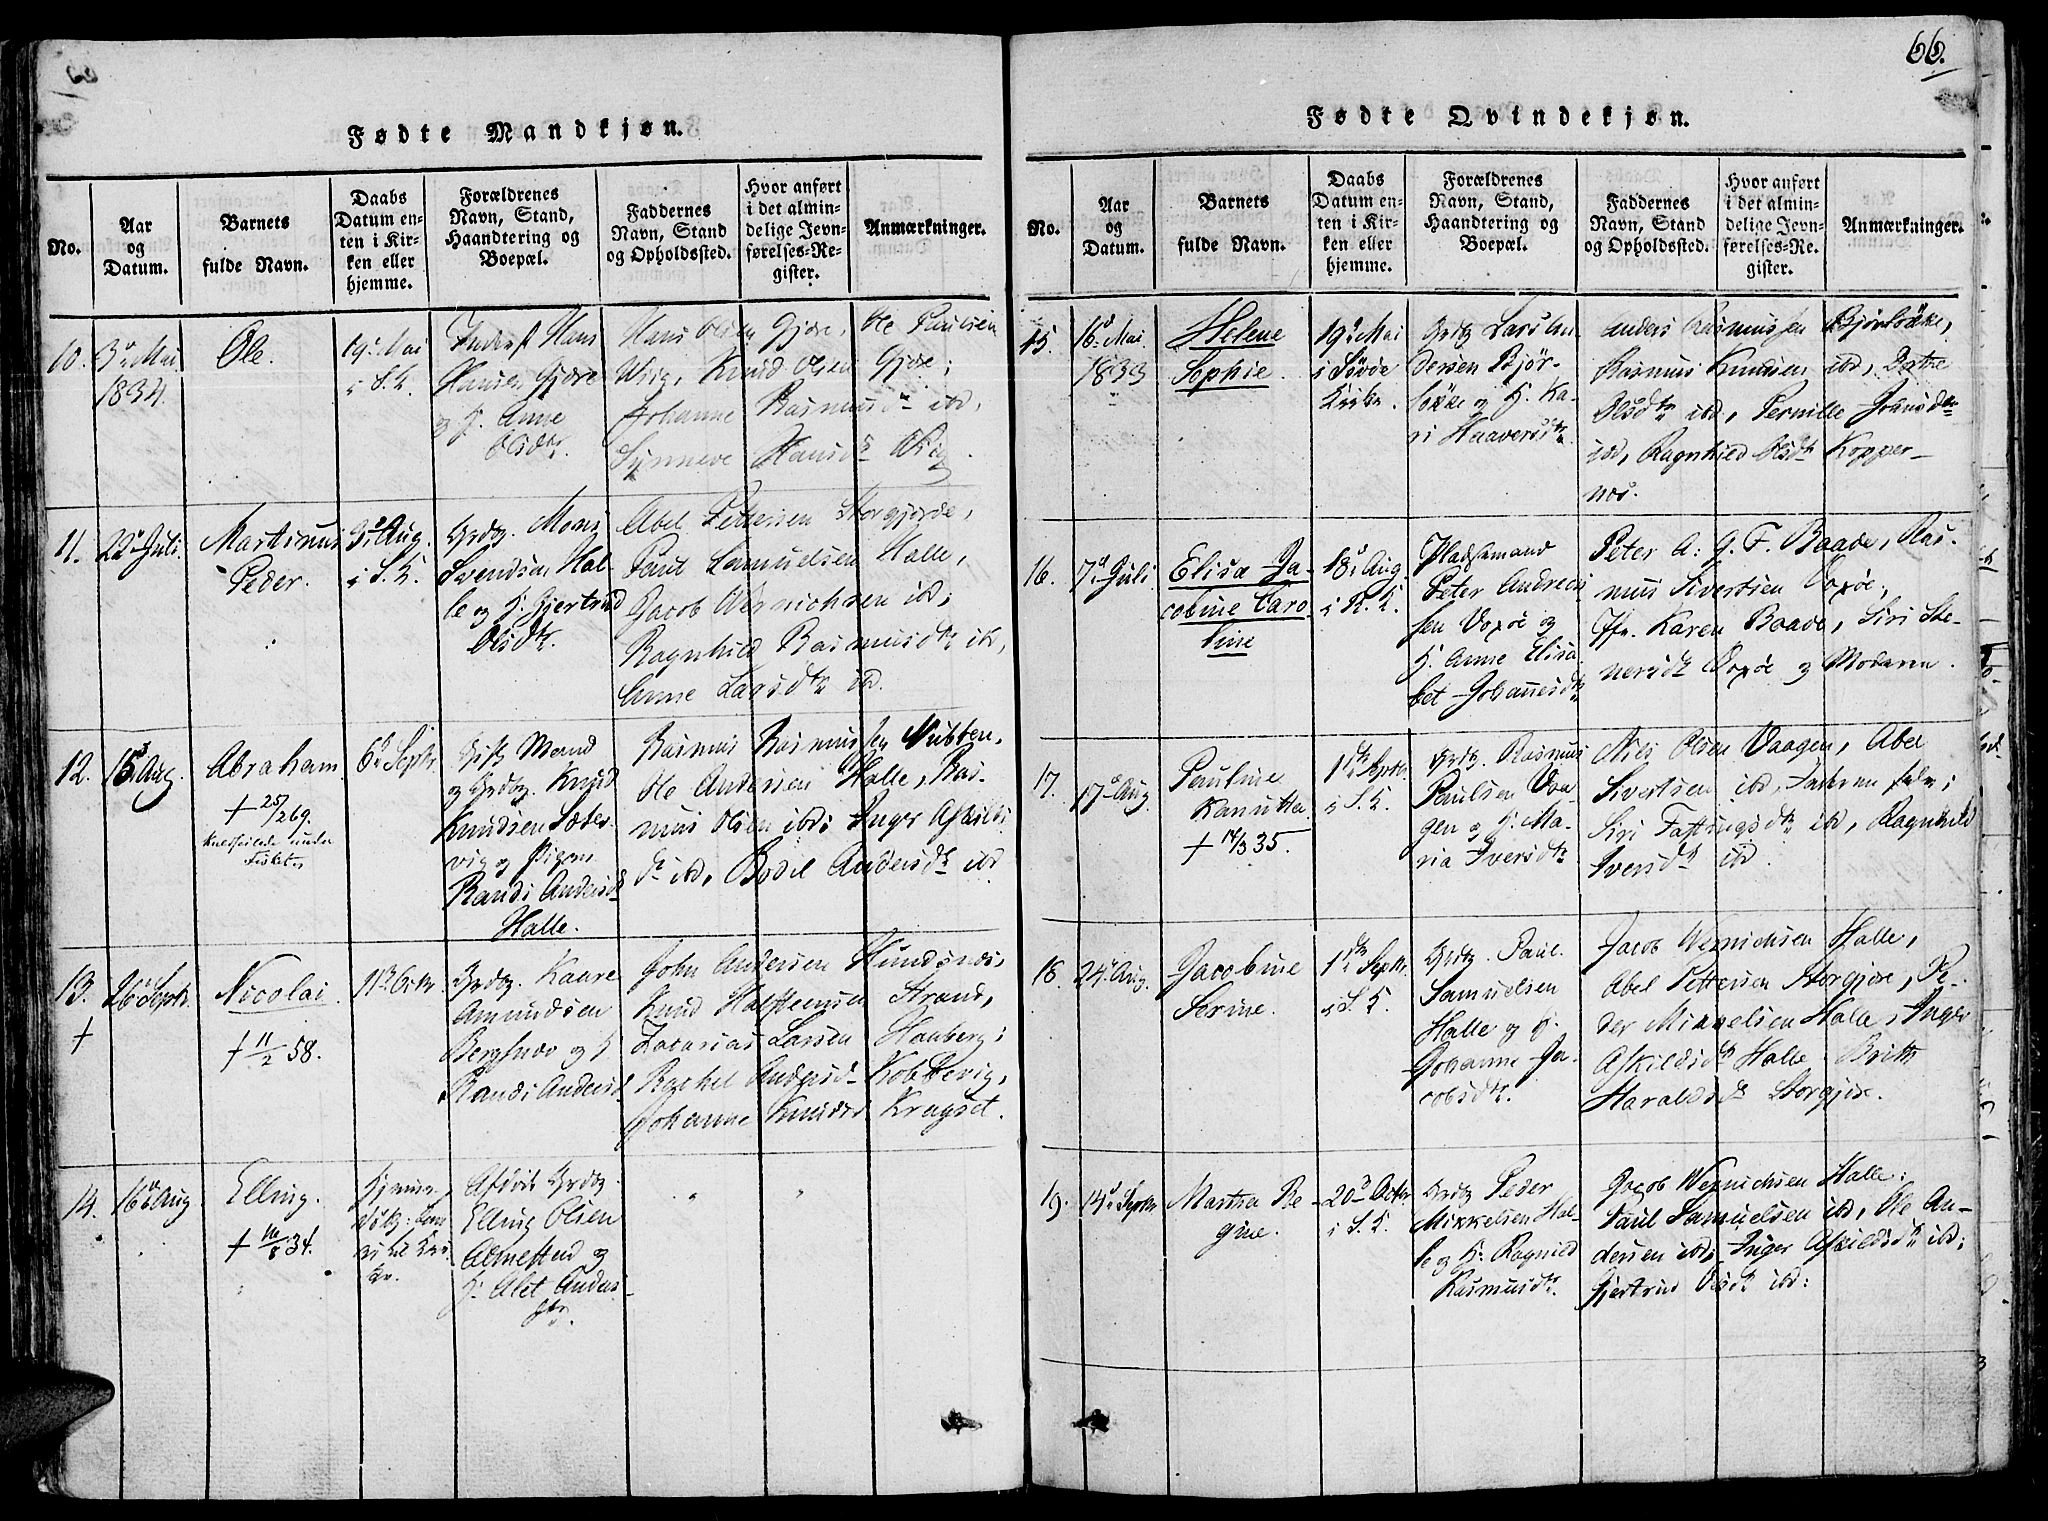 66.
Fødte Mandkjøn.
No.
Aar
og
Datum.
Barnets
fulde Navn.
Daabs
Datum en-
ten i Kir-
ken eller
hjemme.
Forældrenes
Navn, Stand,
Haandtering og
Boepæl.
Faddernes
Navn, Stand
og Opholdssted.
Hvor anført
i det almin-
delige Jevn-
førelses-Re-
gister.
Anmærkninger.
10.
3d Mai
1834.
Ole.
19d Mai
i S.K.
Inderst Hans
Hansen Gjøre
og H. Anne
Olsdtr.
Hans Olsen Gjøre, Ole Paulsen
Wiig, Knud Olsen Gjøre;
Johanne Rasmusdr ibd,
Synneve Hansdr Wiig.
11.
22d Juli.
Martinus
Peder.
3d Aug.
i S.K.
Grdbg. Mons
Svendsen Hal-
le og H. Gjertrud
Olsdtr.
Abel Pettersen Storgjøre,
Paul Samuelsen Halle,
Jacob Wernichsen ibd;
Ragnhild Rasmusdtr ib,
Anne Larsdtr ibd.
12.
15d Aug.
Abraham
+ 25/2 69.
under
Fisket
6d Septr.
Gift Mand
og Grdbg. Knud
Knudsen Sæter-
vig og Pigen
Randi Andersd
Halle.
Rasmus Rasmussen Nubben,
Ole Andersen Halle, Ras-
mus Olsen ibd; Inger Askilds
dr ibd, Bodel Andersdr ibd
13.
+
26d Septr.
Nicolai.
+ 11/2 58.
11te Octr.
Grdbg. Kaare
Amundsen
Bergsnæs og H
Randi Andersd
John Andersen Hundsnæs,
Knud Halsteensen Strand,
Zacarias Larsen Hauberg;
Rachel Andersd Kobbevig,
Johanne Knudsd Kragset.
14.
16d Aug
Elling.
+ 16/8 34.
Hjemme-
døbt:
Afdøde Grdbg.
Elling Olsen
Almestad og
H. Alet Anders-
dtr.
Fødte Qvindekjøn.
No.
Aar
og
Datum.
Barnets
fulde Navn.
Daabs
Datum en-
ten i Kir-
ken eller
hjemme.
Forældrenes
Navn, Stand,
Haandtering og
Boepæl.
Faddernes
Navn, Stand
og Opholdssted.
Hvor anført
i det almin-
delige Jevn-
førelses-Re-
gister.
Anmærkninger.
15.
16d Mai
1833
Helene
Sophie.
19d Mai
i Søvde
Kirke.
Grdbg Lars An
dersen Bjør-
løkke og H. Ka-
ri Haaversdtr.
Anders Rasmussen Bjørløkke,
Rasmus Knudsen ibd, Berthe
Olsdtr ibd, Pernille Johnsdtr
ibd, Ragnhild Olsdtr Kopper-
næs.
16.
7d Juli
Elisa Ja-
cobine Caro-
line
18d Aug
i R.K.
Pladsemand
Peter Andreas
sen Voxøe og
H. Anne Elisa
bet Johannesdtr
Peter A: G. F. Baade, Ras-
mus Sivertsen Voxøe,
Jfr. Karen Baade, Siri Ste-
nersdtr Voxøe og Moderen.
17.
17d Aug.
Pauline
Kanutta
+ 14/3 35.
1ste Septr.
i S.K.
Grdbg. Rasmus
Paulsen Vaa-
gen og H. Ma-
ria Iversdtr
Nils Olsen Vaagen, Abel
Sivertsen ibd, Faderen selv;
Siri Fastingsdtr ibd, Ragnhild
Iversdtr ibd.
18.
24d Aug.
Jacobine
Serine.
1ste Septr.
i S.K.
Grdbg. Paul
Samuelsen
Halle og H.
Johanne Ja-
cobsdtr.
Jacob Wernichsen Halle,
Abel Pettersen Storgjøre, Pe-
der Mikkelsen Halle, Inger
Askildsdtr Halle, Brithe
Haraldsdtr Storgjøre.
19.
14d Septr
Martha Re-
gine.
20d Octr
i S.K.
Grdbg Peder
Mikkelsen Hal-
le og H. Ragnild
Rasmusdtr.
Jacob Wernichsen Halle:
Paul Samuelsen ibd, Ole An-
dersen ibd; Inger Askildsdtr ibd;
Gjertrud Olsdtr ibd: